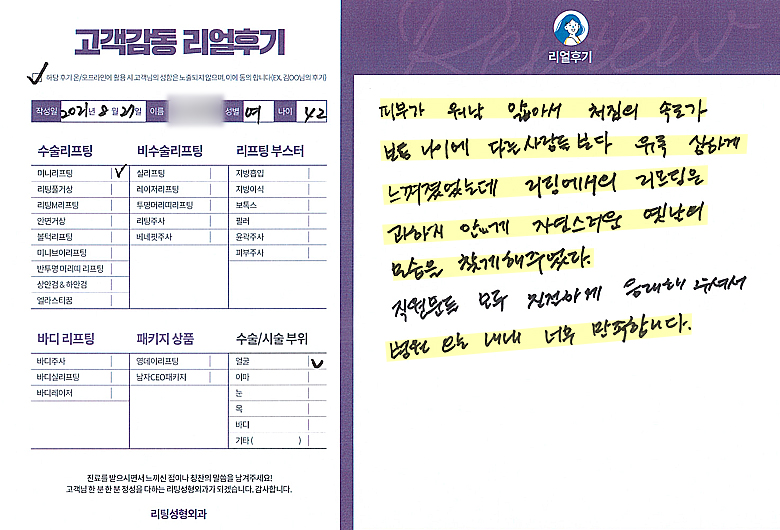 고객감동 리얼후기
해당 후기 온/오프라인에 활용 시 고객님의 성함은 노출되지 않으며, 이에 동의 합니다(EX. 김OO님의 후기)
작성일 2021년 8월 21일 이름 성별 여 나이 42
수술리프팅
미니리프팅
리팅풀거상
리팅M리프팅
안면거상
볼턱리프팅
미니브이리프팅
반투명 미리띠 리프팅
상안검 & 하안검
엘라스티꿈
비수술리프팅
실리프팅
레이저리프팅
투명머리띠리프팅
리팅주사
베네핏주사
리프팅 부스터
지방흡입
지방이식
보톡스
필러
윤곽주사
피부주사
바디 리프팅
바디주사
바디실리프팅
바디레이저
패키지 상품
영데이리프팅
남자CEO패키지
수술/시술 부위
얼굴
이마
눈
목
바디
기타 ( )
진료를 받으시면서 느끼신 점이나 칭찬의 말씀을 남겨주세요!
고객님 한 분 한 분 정성을 다하는 리팅성형외과가 되겠습니다. 감사합니다.
리팅성형외과
Review
리얼후기
피부가 워낙 얇아서 처짐의 속도가
보통 나이에 다른사람들 보다 유독 심하게
느껴졌었는데 리팅에서의 리프팅은
과하지 않게 자연스러운 옛날의
모습을 찾게해주었다.
직원분들 모두 친절하게 응대해 주셔서
병원 오는 내내 너무 만족합니다.